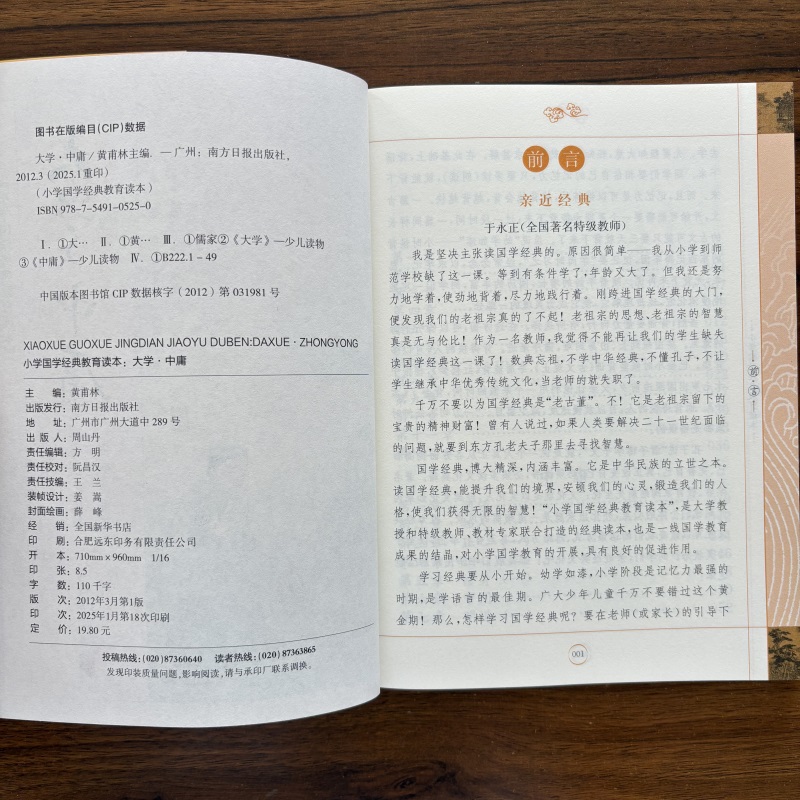 图书在版编目(CIP)数据
大学·中庸/黄甫林主编. —广州：南方日报出版社，
2012.3（2025.1重印）
（小学国学经典教育读本）
ISBN 978-7-5491-0525-0
Ⅰ. ①大… Ⅱ. ①黄… Ⅲ. ①儒家②《大学》—少儿读物
③《中庸》—少儿读物 Ⅳ. ①B222.1-49
中国版本图书馆CIP数据核字（2012）第031981号
XIAOXUE GUOXUE JINGDIAN JIAOYU DUBEN:DAXUE·ZHONGYONG
小学国学经典教育读本：大学·中庸
主 编：黄甫林
出版发行：南方日报出版社
地 址：广州市广州大道中289号
出 版 人：周山丹
责任编辑：方 明
责任校对：阮昌汉
责任技编：王 兰
装帧设计：姜 嵩
封面绘画：薛 峰
经 销：全国新华书店
印 刷：合肥远东印务有限责任公司
开 本：710mm×960mm 1/16
印 张：8.5
字 数：110千字
版 次：2012年3月第1版
印 次：2025年1月第18次印刷
定 价：19.80元
投稿热线：(020)87360640 读者热线：(020)87363865
发现印装质量问题,影响阅读,请与承印厂联系调换。
前言
亲近经典
于永正(全国著名特级教师)
我是坚决主张读国学经典的。原因很简单——我从小学到师
范学校缺了这一课。等到有条件学了,年龄又大了。但我还是努
力地学着,使劲地背着,尽力地践行着。刚跨进国学经典的大门,
便发现我们的老祖宗真的了不起！老祖宗的思想、老祖宗的智慧
真是无与伦比！作为一名教师,我觉得不能再让我们的学生缺失
读国学经典这一课了！数典忘祖,不学中华经典,不懂孔子,不让
学生继承中华优秀传统文化,当老师的就失职了。
千万不要以为国学经典是“老古董”。不！它是老祖宗留下的
宝贵的精神财富！曾有人说过,如果人类要解决二十一世纪面临
的问题,就要到东方孔老夫子那里去寻找智慧。
国学经典,博大精深,内涵丰富。它是中华民族的立世之本。
读国学经典,能提升我们的境界,安顿我们的心灵,锻造我们的人
格,使我们获得无限的智慧！“小学国学经典教育读本”,是大学教
授和特级教师、教材专家联合打造的经典读本,也是一线国学教育
成果的结晶,对小学国学教育的开展,具有良好的促进作用。
学习经典要从小开始。幼学如漆,小学阶段是记忆力最强的
时期,是学语言的最佳期。广大少年儿童千万不要错过这个黄
金期！那么,怎样学习国学经典呢？要在老师(或家长)的引导下
001
前·言